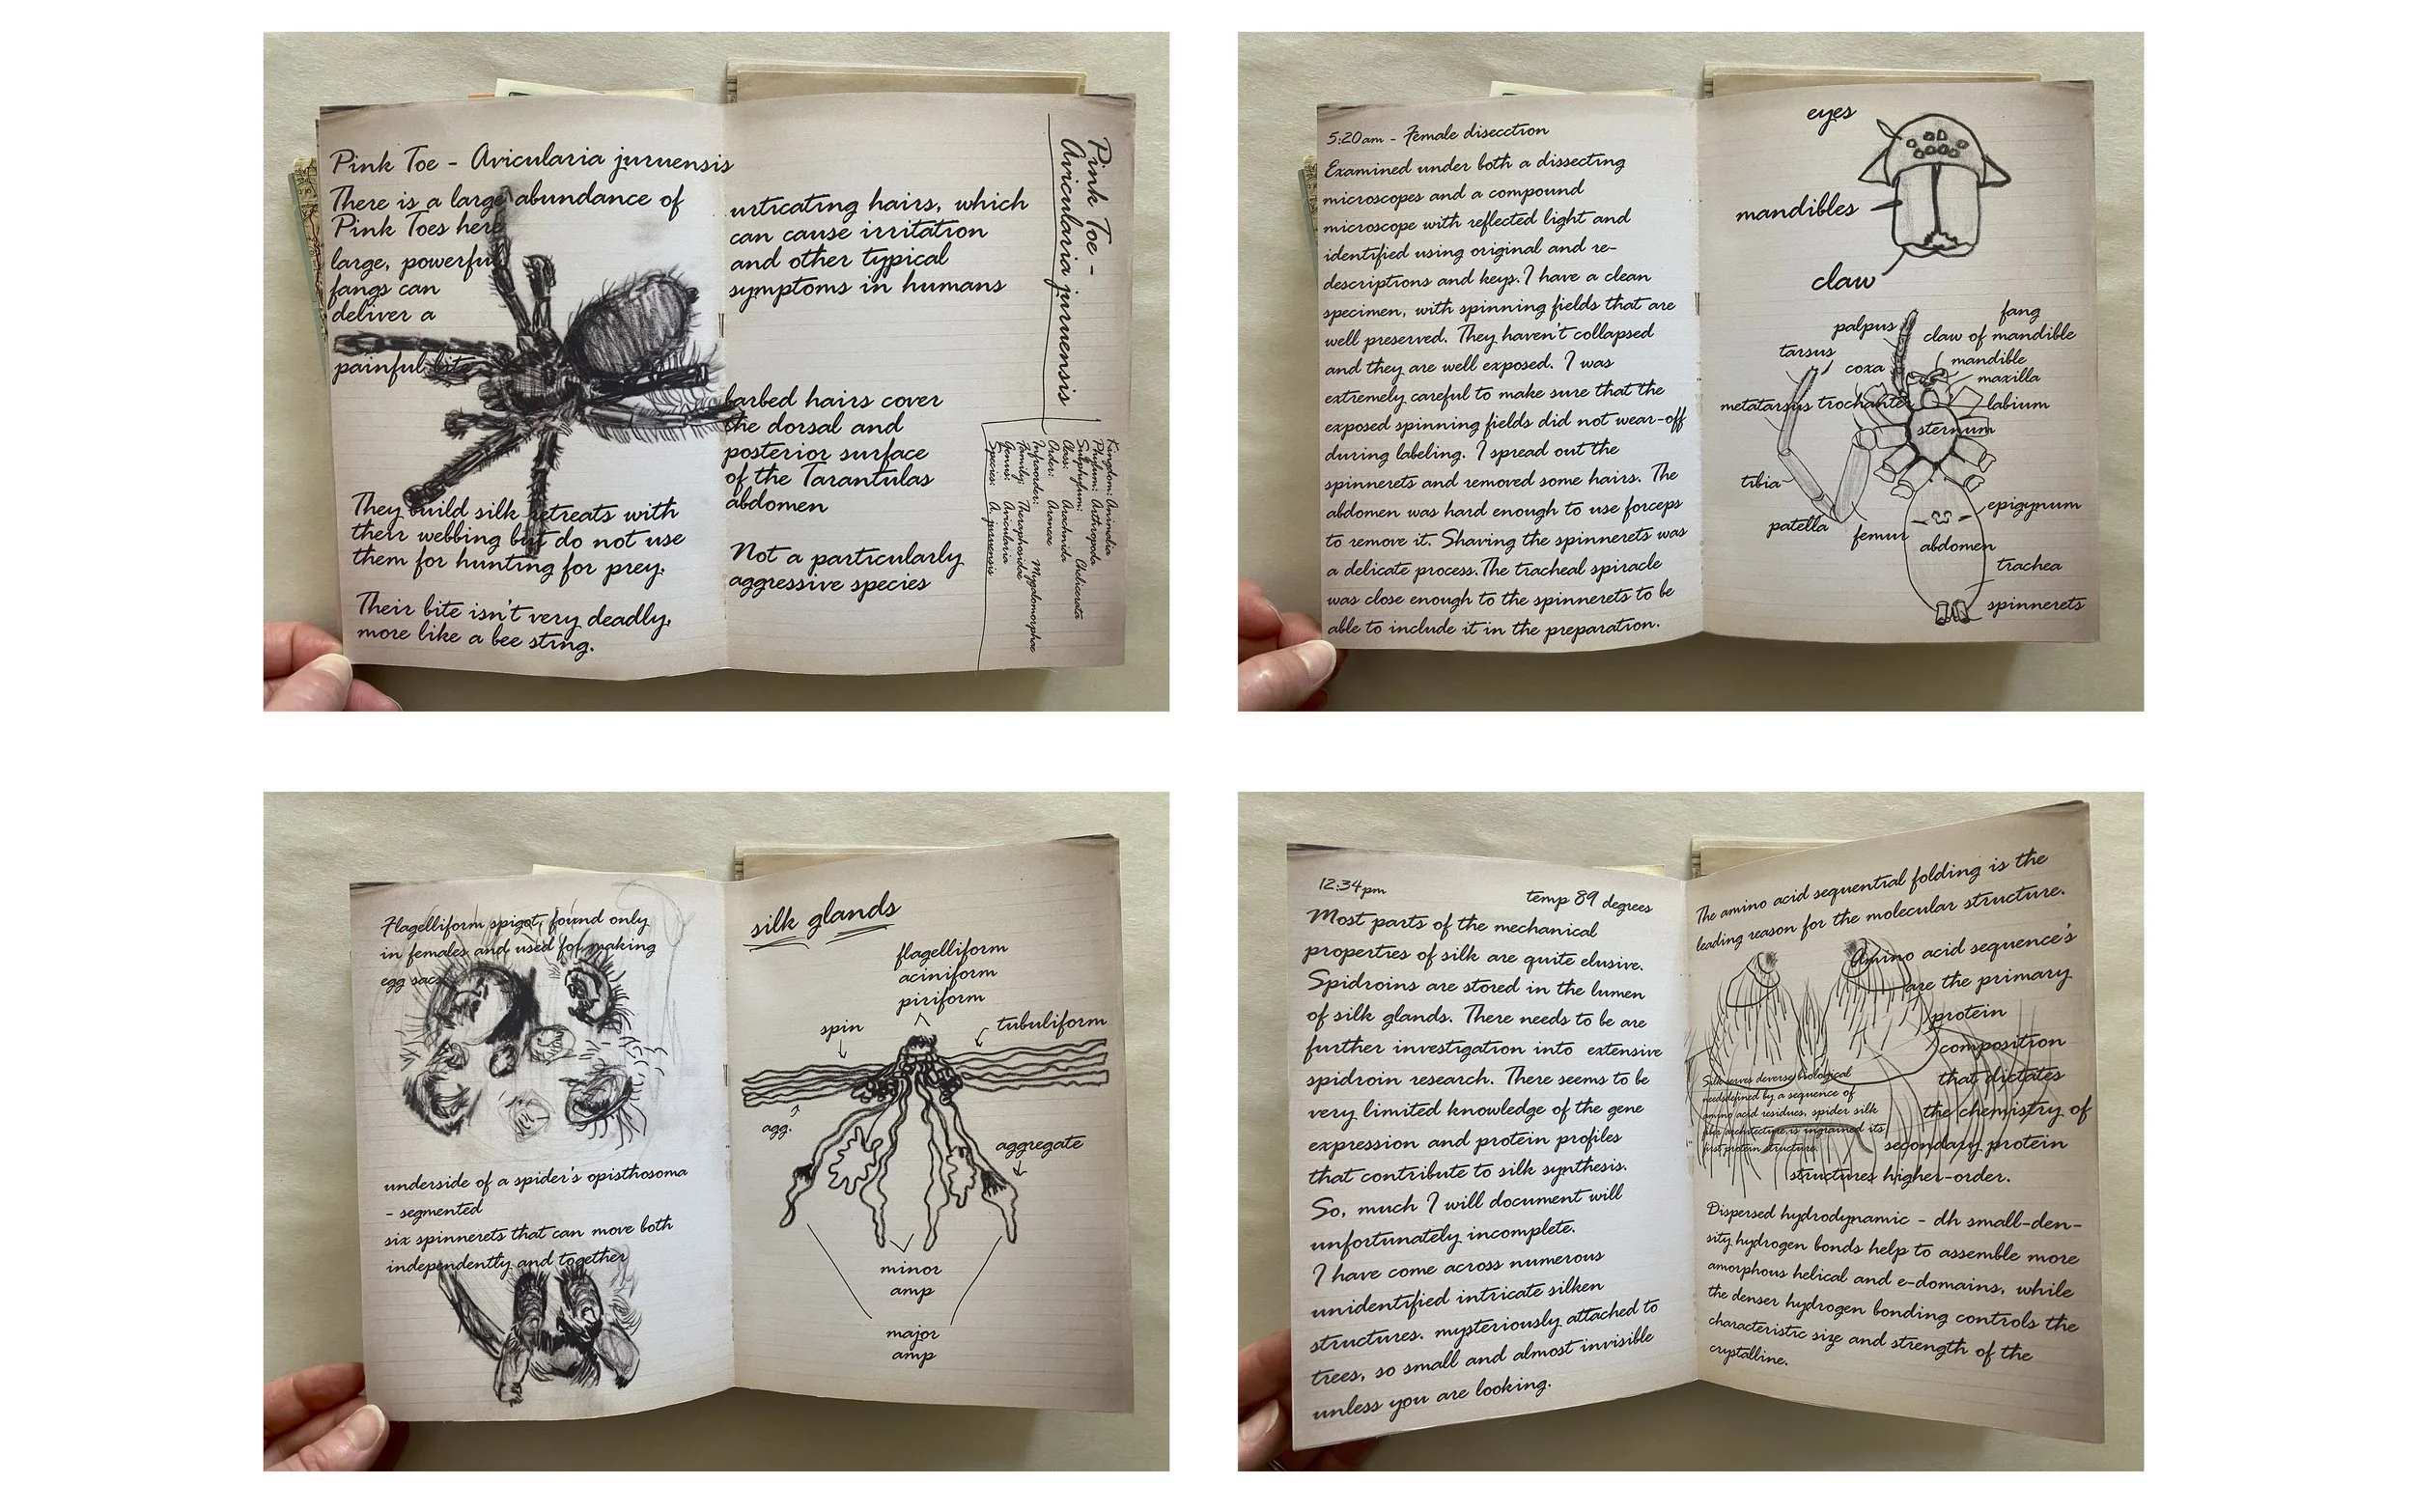 Pink Toe - Avicularia juruensis
There is a large abundance of
Pink Toes here
large, powerful
fangs can
deliver a
painful bite
They build silk retreats with
their webbing but do not use
them for hunting for prey.
Their bite isn't very deadly,
more like a bee sting.
urticating hairs, which
can cause irritation
and other typical
symptoms in humans
barbed hairs cover
the dorsal and
posterior surface
of the Tarantulas
abdomen
Not a particularly
aggressive species
Pink Toe -
Avicularia juruensis
Kingdom: Animalia
Phylum: Arthropoda
Subphylum: Chelicerata
Class: Arachnida
Order: Araneae
Infraorder: Mygalomorphae
Family: Theraphosidae
Genus: Avicularia
Species: A. juruensis
5:20am - Female disecction
Examined under both a dissecting
microscopes and a compound
microscope with reflected light and
identified using original and re-
descriptions and keys. I have a clean
specimen, with spinning fields that are
well preserved. They haven't collapsed
and they are well exposed. I was
extremely careful to make sure that the
exposed spinning fields did not wear-off
during labeling. I spread out the
spinnerets and removed some hairs. The
abdomen was hard enough to use forceps
to remove it. Shaving the spinnerets was
a delicate process. The tracheal spiracle
was close enough to the spinnerets to be
able to include it in the preparation.
eyes
mandibles
claw
fang
palpus
claw of mandible
tarsus
mandible
coxa
maxilla
metatarsus trochanter
labium
sternum
tibia
epigynum
patella
femur
abdomen
trachea
spinnerets
Flagelliform spigot, found only
in females and used for making
egg sacs
underside of a spider's opisthosoma
- segmented
six spinnerets that can move both
independently and together
silk glands
flagelliform
aciniform
piriform
spin
tubuliform
agg.
aggregate
minor
amp
major
amp
12:34pm
temp 89 degrees
Most parts of the mechanical
properties of silk are quite elusive.
Spidroins are stored in the lumen
of silk glands. There needs to be are
further investigation into extensive
spidroin research. There seems to be
very limited knowledge of the gene
expression and protein profiles
that contribute to silk synthesis.
So, much I will document will
unfortunately incomplete.
I have come across numerous
unidentified intricate silken
structures. mysteriously attached to
trees, so small and almost invisible
unless you are looking.
The amino acid sequential folding is the
leading reason for the molecular structure.
Amino acid sequence's
are the primary
protein
composition
that dictates
the chemistry of
secondary protein
structures higher-order.
Silk serves deverse biological
needsdefined by a sequence of
amino acid residues, spider silk
fiber architecture is ingrained its
first protein structure.
Dispersed hydrodynamic - dh small-den-
sity hydrogen bonds help to assemble more
amorphous helical and e-domains, while
the denser hydrogen bonding controls the
characteristic size and strength of the
crystalline.